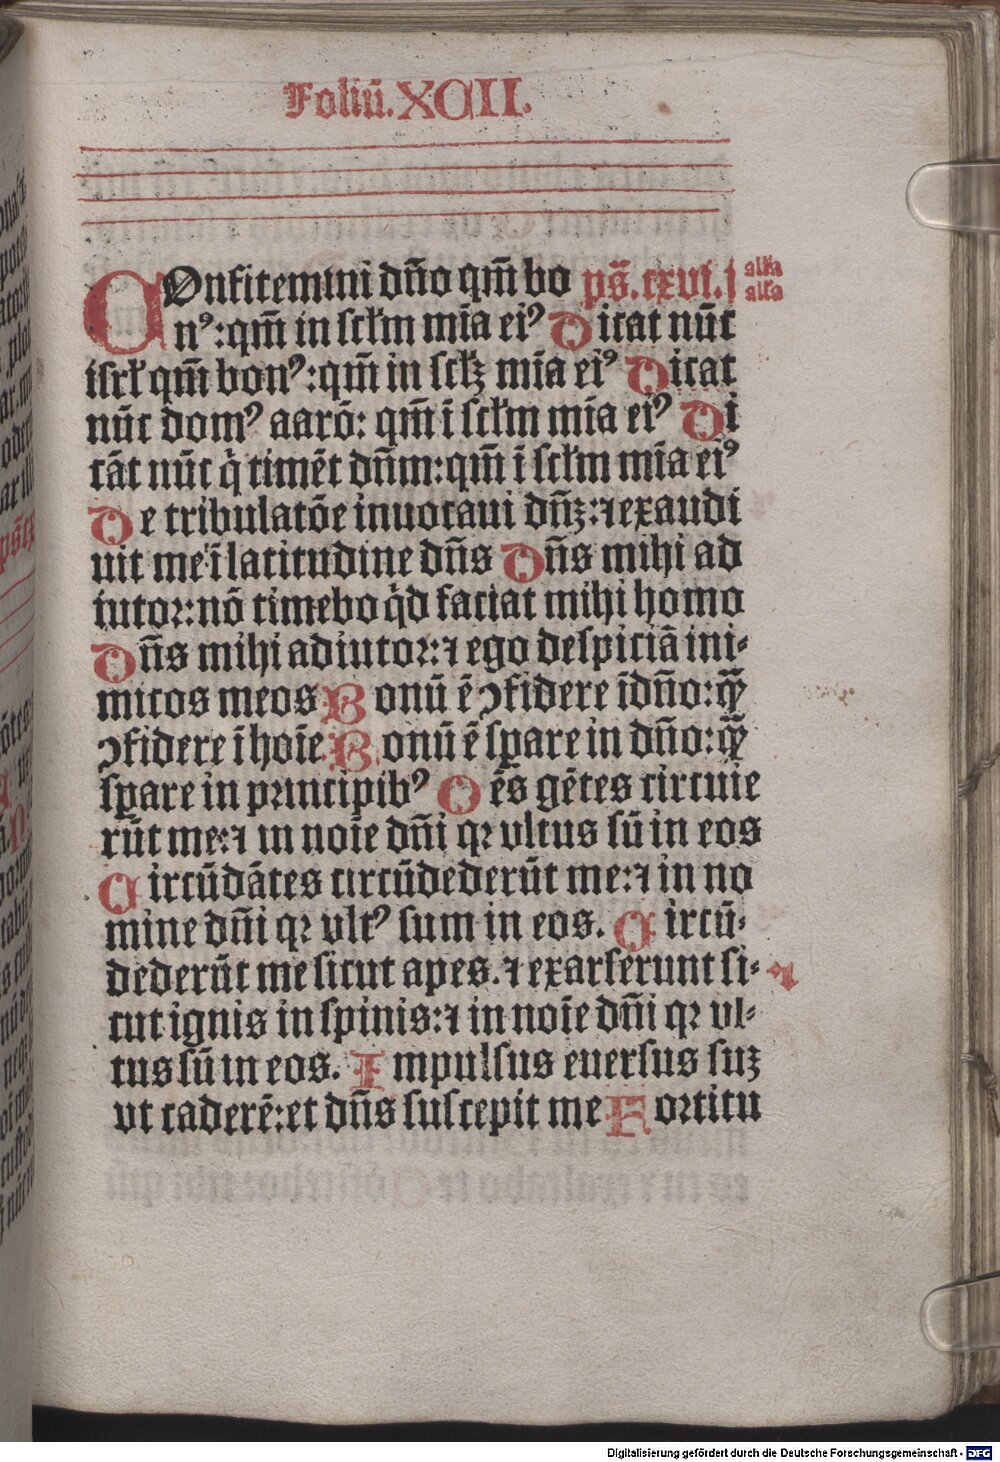 Foliū. XCII.
COnfitemini dño qm̄ bo pš. cxvi. j alla
nꝰ: qm̄ in scłm mīa eiꝰ Dicat nūc alla
isrł qm̄ bonꝰ: qm̄ in scłꝫ mīa eiꝰ Dicat
nūc domꝰ aarō: qm̄ ī scłm mīa eiꝰ Di
cāt nūc q̇ timēt dñm: qm̄ ī scłm mīa eiꝰ
De tribulatōe inuocaui dñꝫ: ⁊ exaudi
uit me ī latitudine dñs Dñs mihi ad
iutor: nō timebo q̇d faciat mihi homo
Dñs mihi adiutor: ⁊ ego despiciā ini⸗
micos meos Bonū ē ↄfidere ī dño: qꝫ̄
ↄfidere ī hoīe Bonū ē sꝑare in dño: qꝫ̄
sꝑare in principibꝰ Oēs gētes circuie
rūt me: ⁊ in noīe dñi qꝛ vltus sū in eos
Circūdātes circūdederūt me: ⁊ in no
mine dñi qꝛ vltꝰ sum in eos. Circū⸗
dederūt me sicut apes. ⁊ exarserunt si⸗
cut ignis in spinis: ⁊ in noīe dñi qꝛ vl⸗
tus sū in eos. Impulsus euersus suꝫ
vt caderē: et dñs suscepit me Fortitu
Digitalisierung gefördert durch die Deutsche Forschungsgemeinschaft - DFG